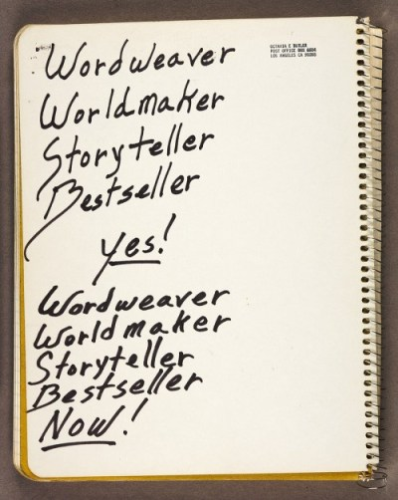 Wordweaver
Worldmaker
Storyteller
Bestseller
yes!
Wordweaver
Worldmaker
Storyteller
Bestseller
Now!
OCTAVIA E BUTLER
POST OFFICE BOX
LOS ANGELES CA